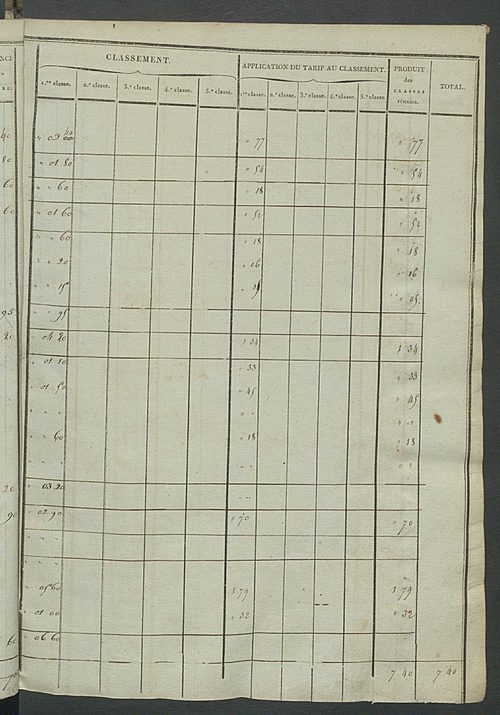 CLASSEMENT. APPLICATION DU TARIF AU CLASSEMENT. PRODUIT des CLASSES réunies. TOTAL.
1.re classe. 2.e classe. 3.e classe. 4.e classe. 5.e classe. 1.re classe. 2.e classe. 3.e classe. 4.e classe. 5.e classe.
40
" 02 00 " 77 " 77
" 01 80 " 54 " 54
" " 60 " 18 " 18
" 01 60 " 52 " 52
" " 60 " 18 " 18
" " 20 " 06 " 06
" " 15 " 05.
" " 95
" 04 20 1 34 1 34
" 01 10 " 33 " 33
" 01 50 " 45 " 45
" " " " " " "
" " 60 " 18 " 18
" " "
" 03 20
" 02 90 " 70 " 70
" " "
" " "
" 05 60 1 79 1 79
" 01 00 " 32 " 32
" 06 60
7 40 7 40